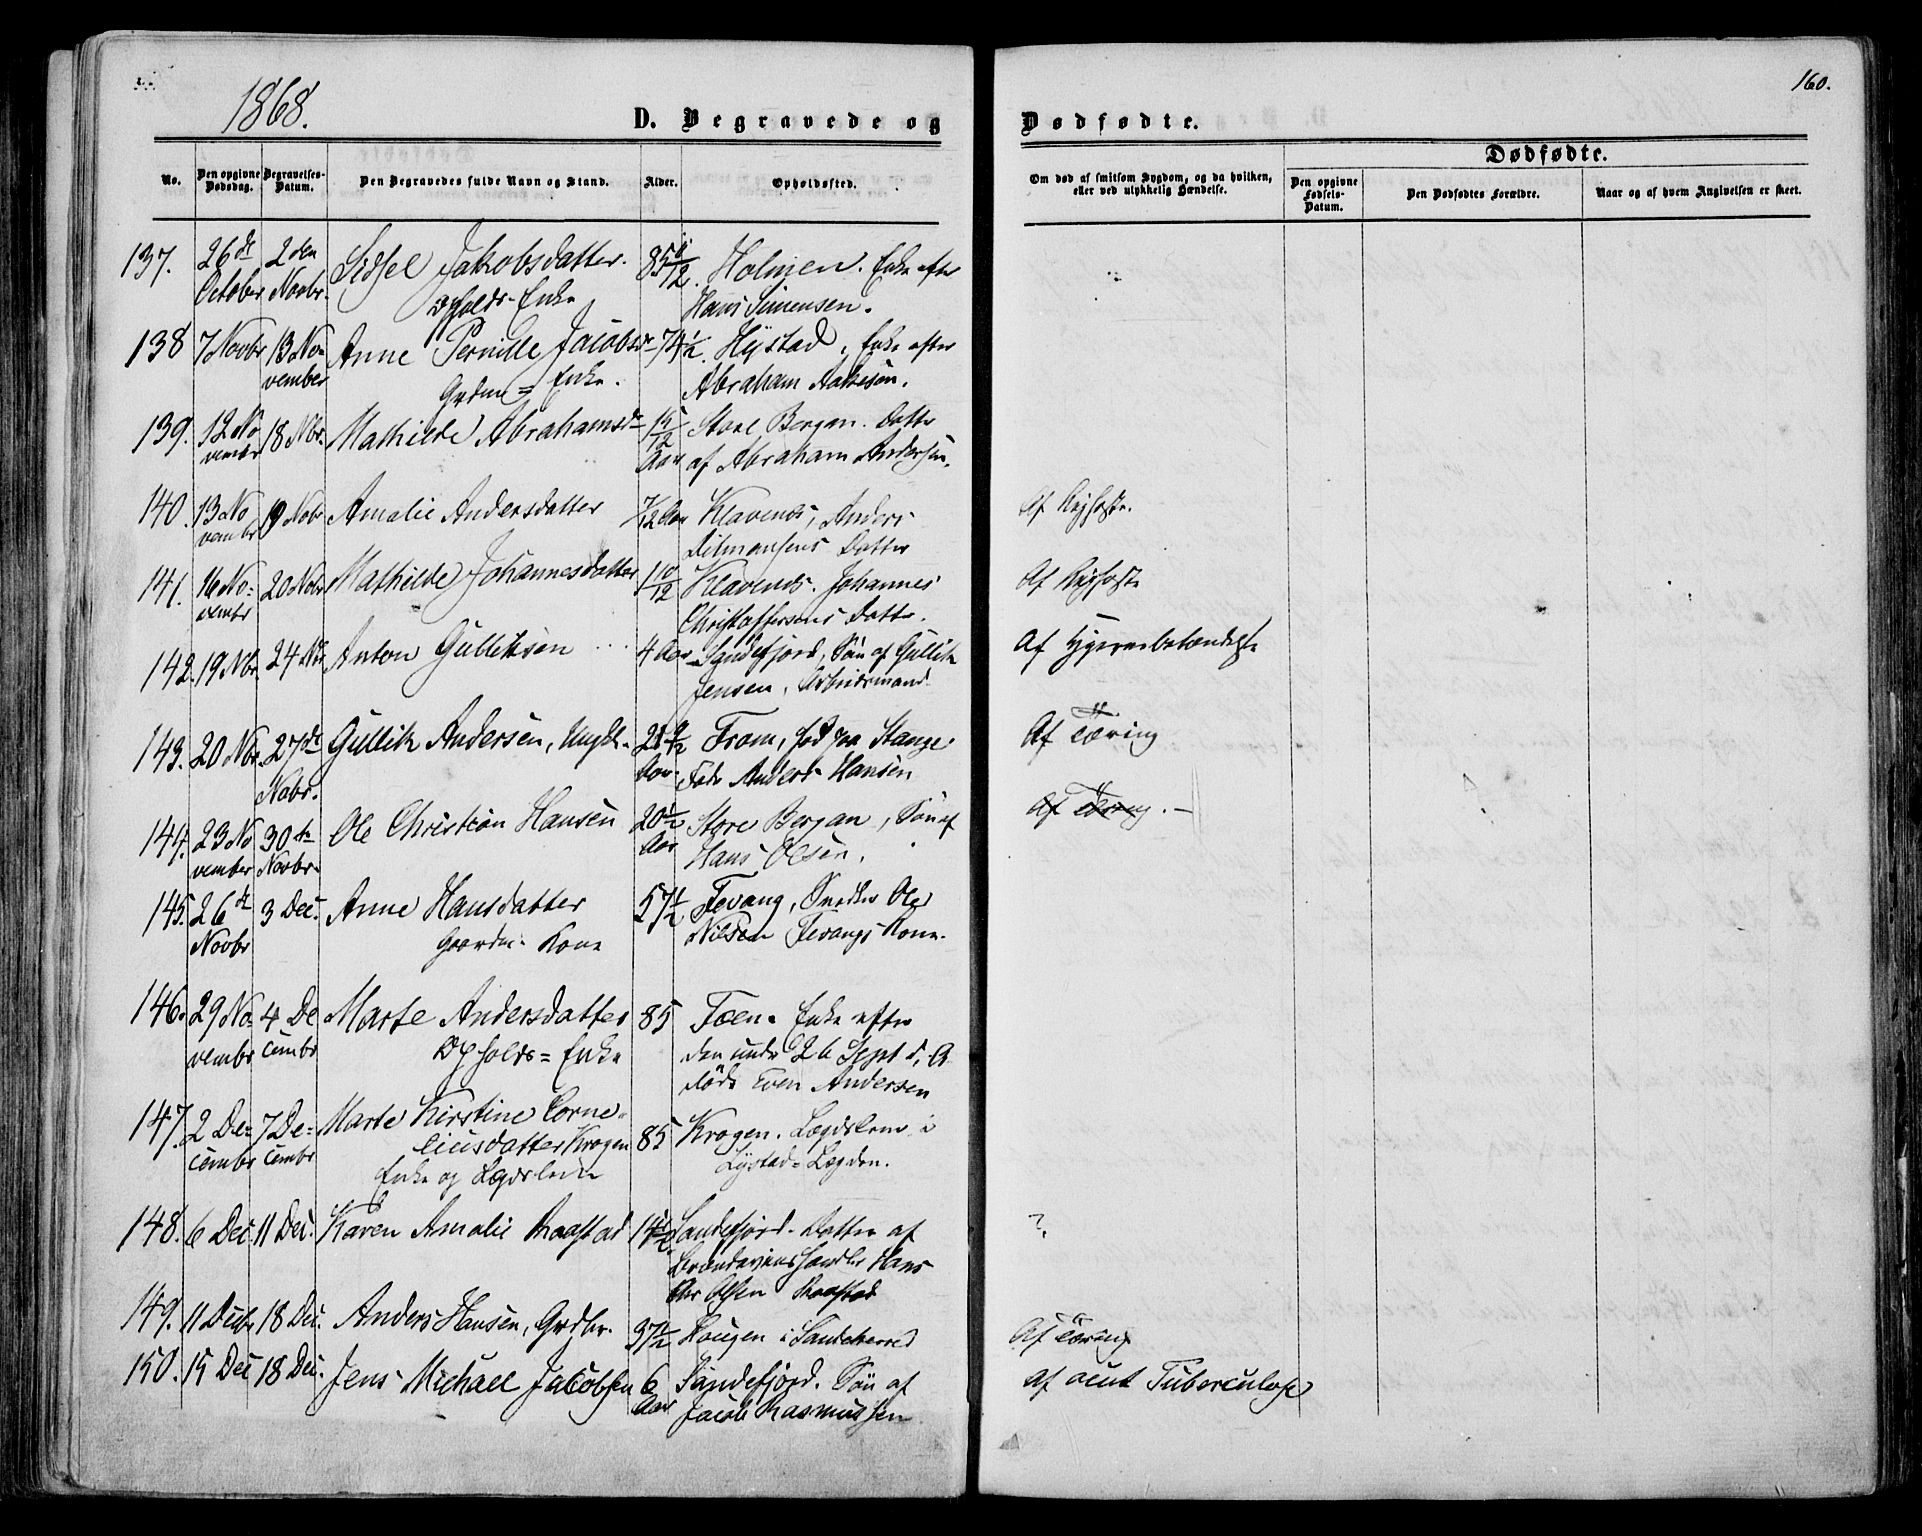 1868.
160.
D. Begravede og Dødfødte.
Dødfødte.
No.
Den opgivne Dødsdag.
Begravelses-Datum.
Den Begravedes fulde Navn og Stand.
Alder.
Opholdssted.
Om død af smitsom Sygdom, og da hvilken,
eller ved ulykkelig Hændelse.
Den opgivne Fødsels-Datum.
Den Dødfødtes Forældre.
Naar og af hvem Angivelsen er skeet.
137. 26de 2den Sidsel Jakobsdatter. 85 Holmen. Enke efter
October Novbr. Enke Hans Simensen.
138 7 Novbr 13 No- Anne Pernille Jacobsd- 74½. Hystad, Enke efter
vember Grdm= Enke. Abraham
139. 12 No 18 Nbr. Mathilde Abrahamsd- Store Bergan. Datter
vembr Aar af Abraham Andersen.
140. 13 No 19 Nobr Amalie Andersdatter 7/12 Aar Klavenes, Anders Af
vembr Datter
141. 16 No- 20 Nobr Mathilde Johannesdatter 1 10/12 Klavenes. Johannes Af
vembr Christoffersens Datter.
142. 19 Nbr. 24 Nbr Anton Gulliksen 4 Aar Sandefjord, Søn af Gullik Af Hjernebetændelse
Jensen, Arbeidsmand.
143. 20 Nbr. 27de Gullik Andersen, Ungk. From, fød paa Stange. Af Tæring
Nobr. Aar Fader Anders Hansen
144. 23 No 30te Ole Christian Hansen 20½ Store Bergan, Søn af Af Tæring. –
vember Novbr. Aar Hans Olsen.
145. 26de 3 Dec. Anne Hansdatter 57½ Fevang, Snedker Ole
Novbr Gaardm. Kone Nilsen Fevangs Kone.
146. 29 No- 4 De Marte Andersdatter 85 Foen. Enke efter
vembr cembr Enke den under 26 Sept d. A
døde Even Andersen
147. 2 De= 7 De= Marte Kirstine Corne-
cembr cembr liusdatter Krogen 85 Krogen. Lægdslem i
Enke og Lægdslem Lystad= Lægden.
148. 6 Dec. 11 Dec. Karen Amalie Raastad 14½ Sandefjord. Datter af ?
Brændevinshandler Hans
Olsen Raastad
149. 11 Decbr 18 Dec. Anders Hansen, Grdbr. 37½ Haugen i Sandeherred Af Tæring
150. 15 Dec 18 Dec. Jens Michael Jacobsen 6 Sandefjord. Søn af af acut Tuberculose
Aar Jacob Rasmussen